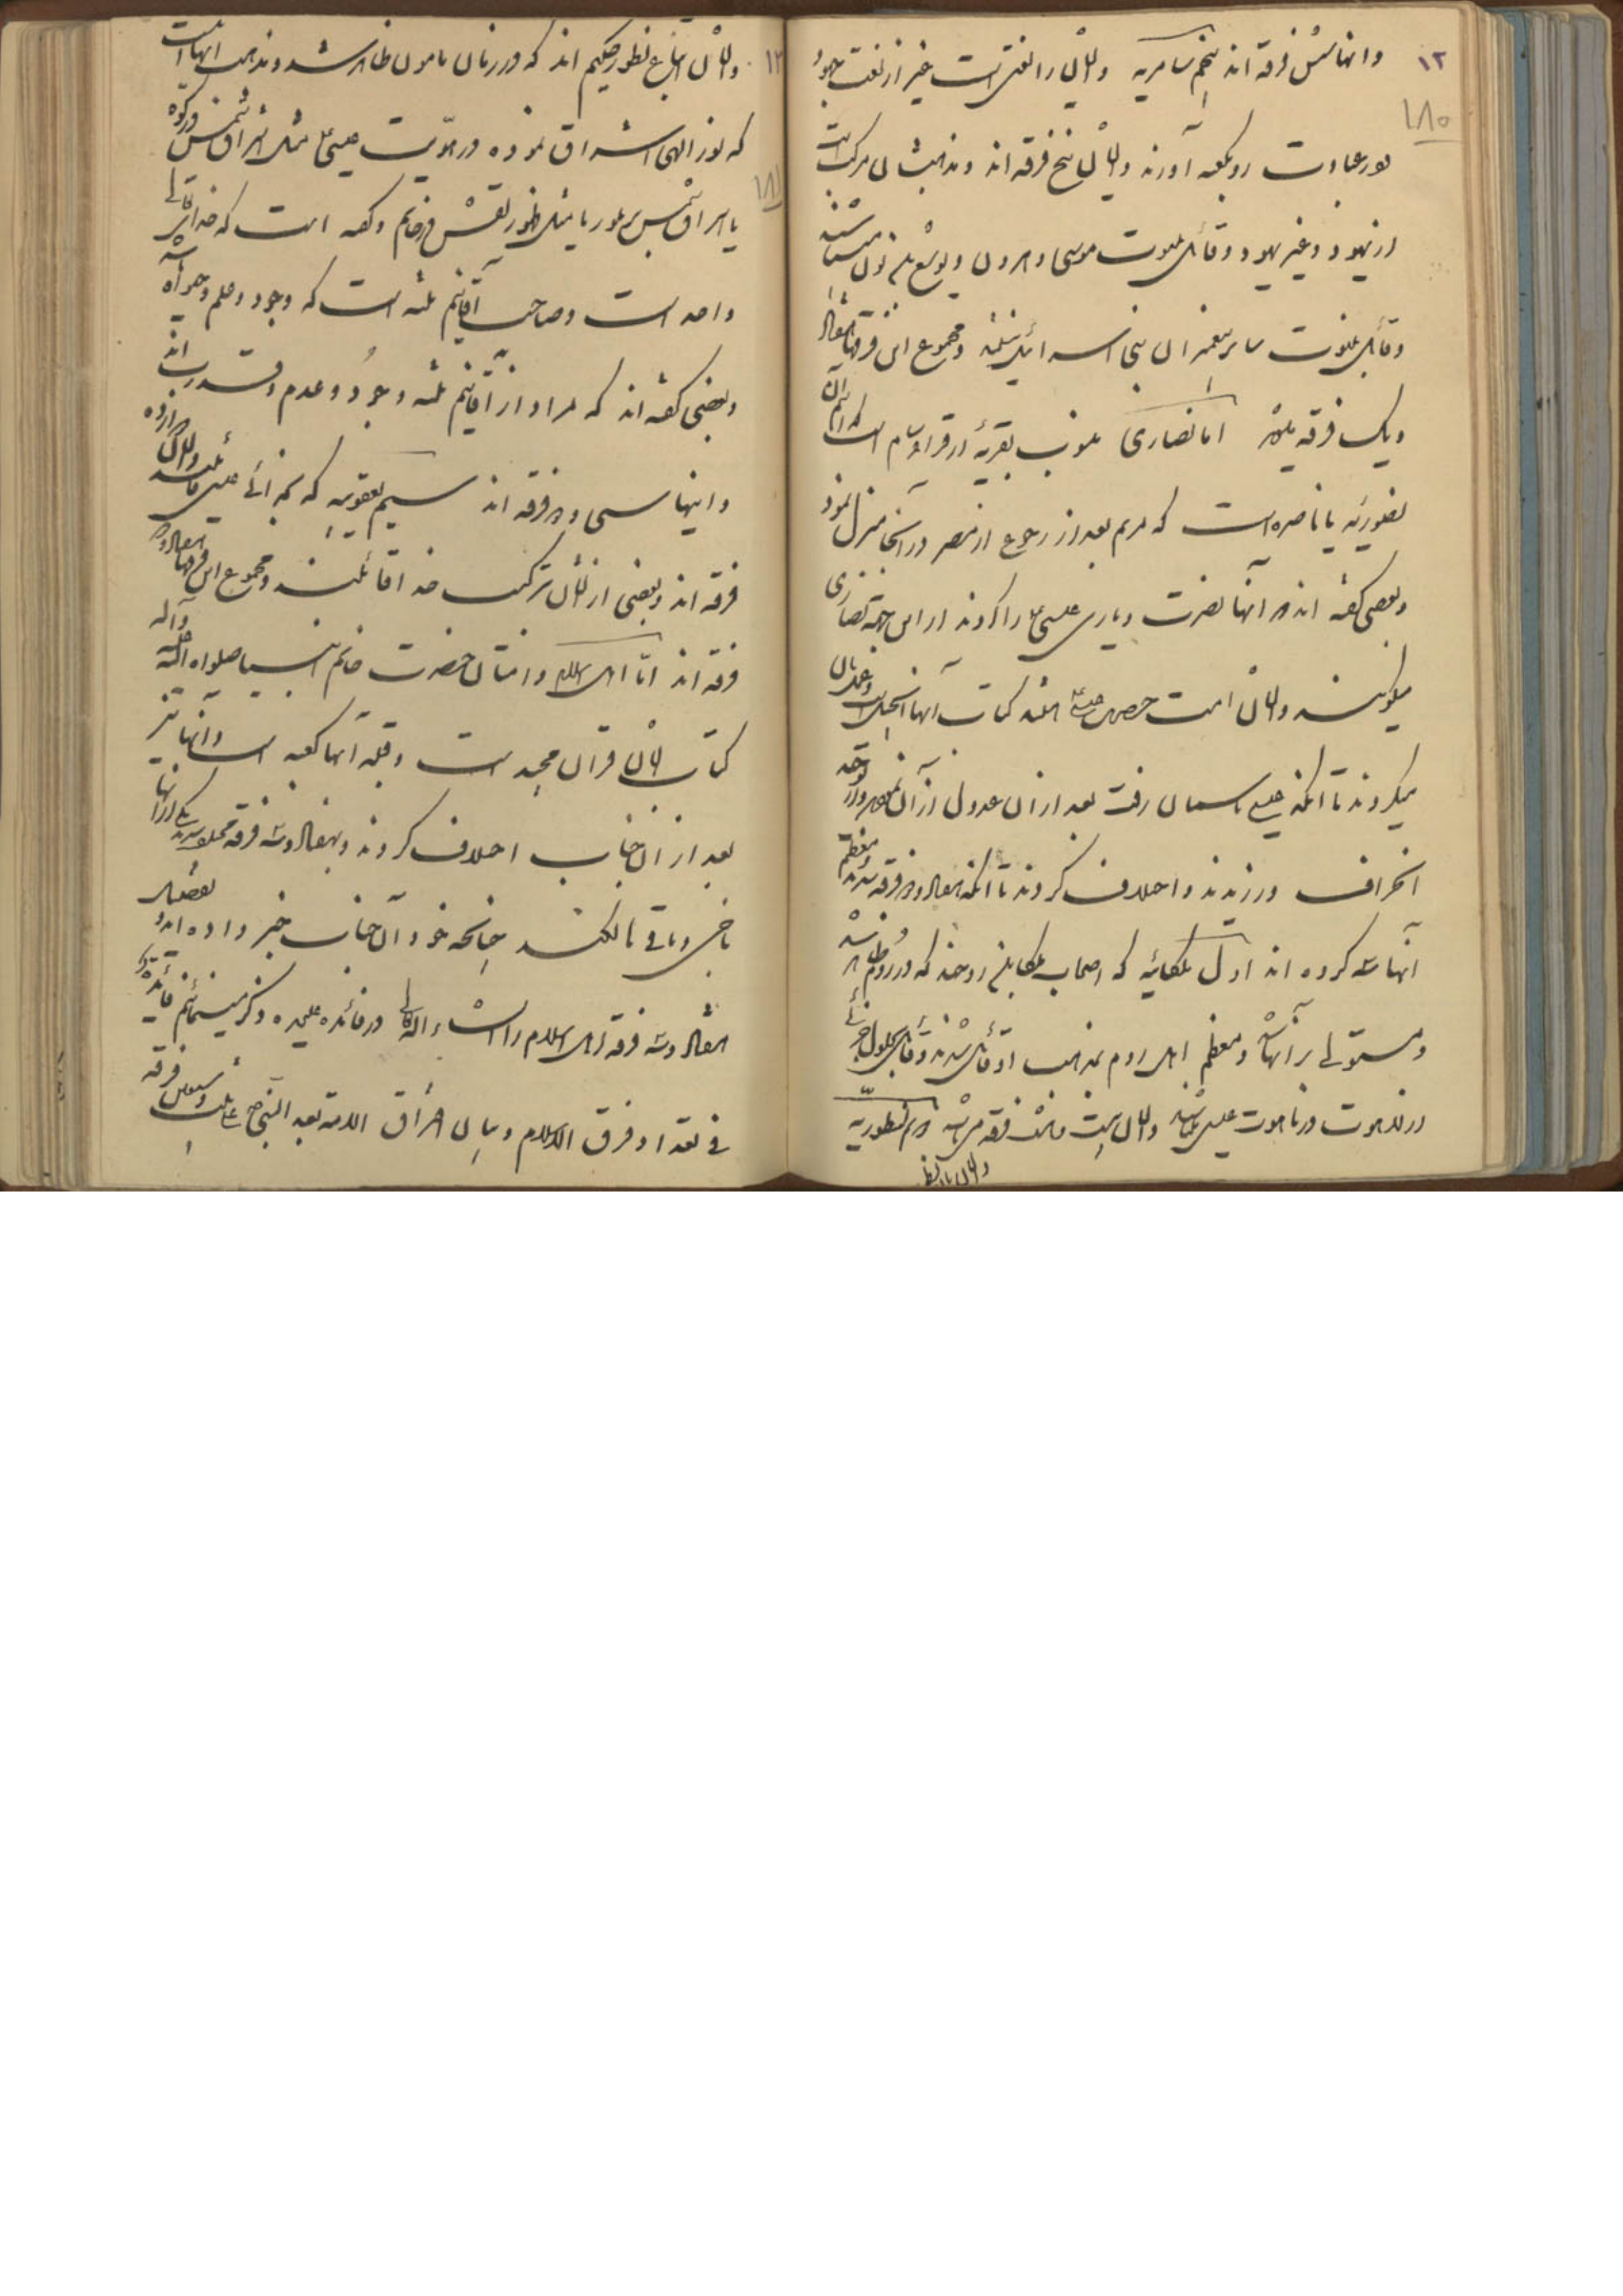 ۱۲
۱۸۰
وانها شش فرقه اند پنجم سامریه وایشان را لغتی است غیر از لغت یهود
رو بکعبه آورند وایشان پنج فرقه اند ومذهبشان مرکب است
از یهود وغیر یهود وقائل بنبوت موسی وهرون ویوشع بن نون میباشند
وقائل بنبوت سایر پیغمبران بنی اسرائیل نیستند ومجموع این فرقها هفتاد
ویک فرقه اما نصاری منسوب بقریه از قرای شام است که نام آن
یا ناصره است که مریم بعد از رجوع از مصر در آنجا منزل نمود
وبعضی گفته اند که آنها نصرت ویاری عیسی ع را کردند از این جهة نصاری
میگویند وایشان امت حضرت عیسی ع اند کتاب آنها انجیل است
میکردند تا آنکه عیسی باسمان رفت بعد از آن عدول از آن نموده
انحراف ورزیدند واختلاف کردند تا آنکه هفتاد ودو فرقه شدند ومعظم
آنها سه کرده اند اول ملکائیه که اصحاب ملکا یعنی که در روم ظاهر شد
ومستولی بر آنها شد ومعظم اهل روم بمذهب او قائل شدند وقائل بحلول
در ناسوت عیسی وایشان بیست فرقه می باشند دوم نسطوریه
وایشان اتباع
۱۳
۱۸۱
وایشان اتباع نسطور حکیم اند که در زمان مامون ظاهر شد ومذهب آنها است
که نور الهی اشراق نموده در هویت عیسی ع مثل اشراق شمس در کوه
یا اشراق شمس بر بلور یا مثل ظهور نقش در خاتم وگفته است که خدای تعالی
واحد است وصاحب اقانیم ثلثه است که وجود وعلم وحیوة
وبعضی گفته اند که مراد از اقانیم ثلثه وجود وعدم
واینها سی ودو فرقه اند سیم یعقوبیه که بخدائی عیسی قائلند
فرقه اند وبعضی از ایشان بترکیب خدا قائلند ومجموع این فرقها هفتاد ودو
فرقه اند اما اهل اسلام وامتان حضرت خاتم انبیا صلواة الله علیه وآله
کتاب ایشان قران مجید است وقبله آنها کعبه است وآنها نیز
بعد از آن جناب اختلاف کردند وبهفتاد وسه فرقه مختلف شدند یکی از آنها
ناجی وباقی هالکند چنانچه خود آن جناب خبر داده اند وتفصیل
هفتاد وسه فرقه اهل اسلام را انشاء الله تعالی در فائده علیحده ذکر مینمائیم فائده
فی تعداد فرق الاسلام وبیان افتراق الامة بعد النبی ص علی ثلث وسبعین فرقه